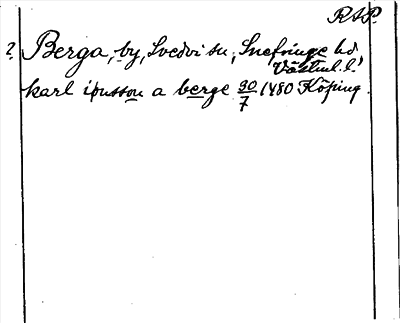 RAP.
? Berga, by, Svedvi sn, Snefringe hd.
Västml. l.
karl ionsson a berge 30/7 1480 Köping.